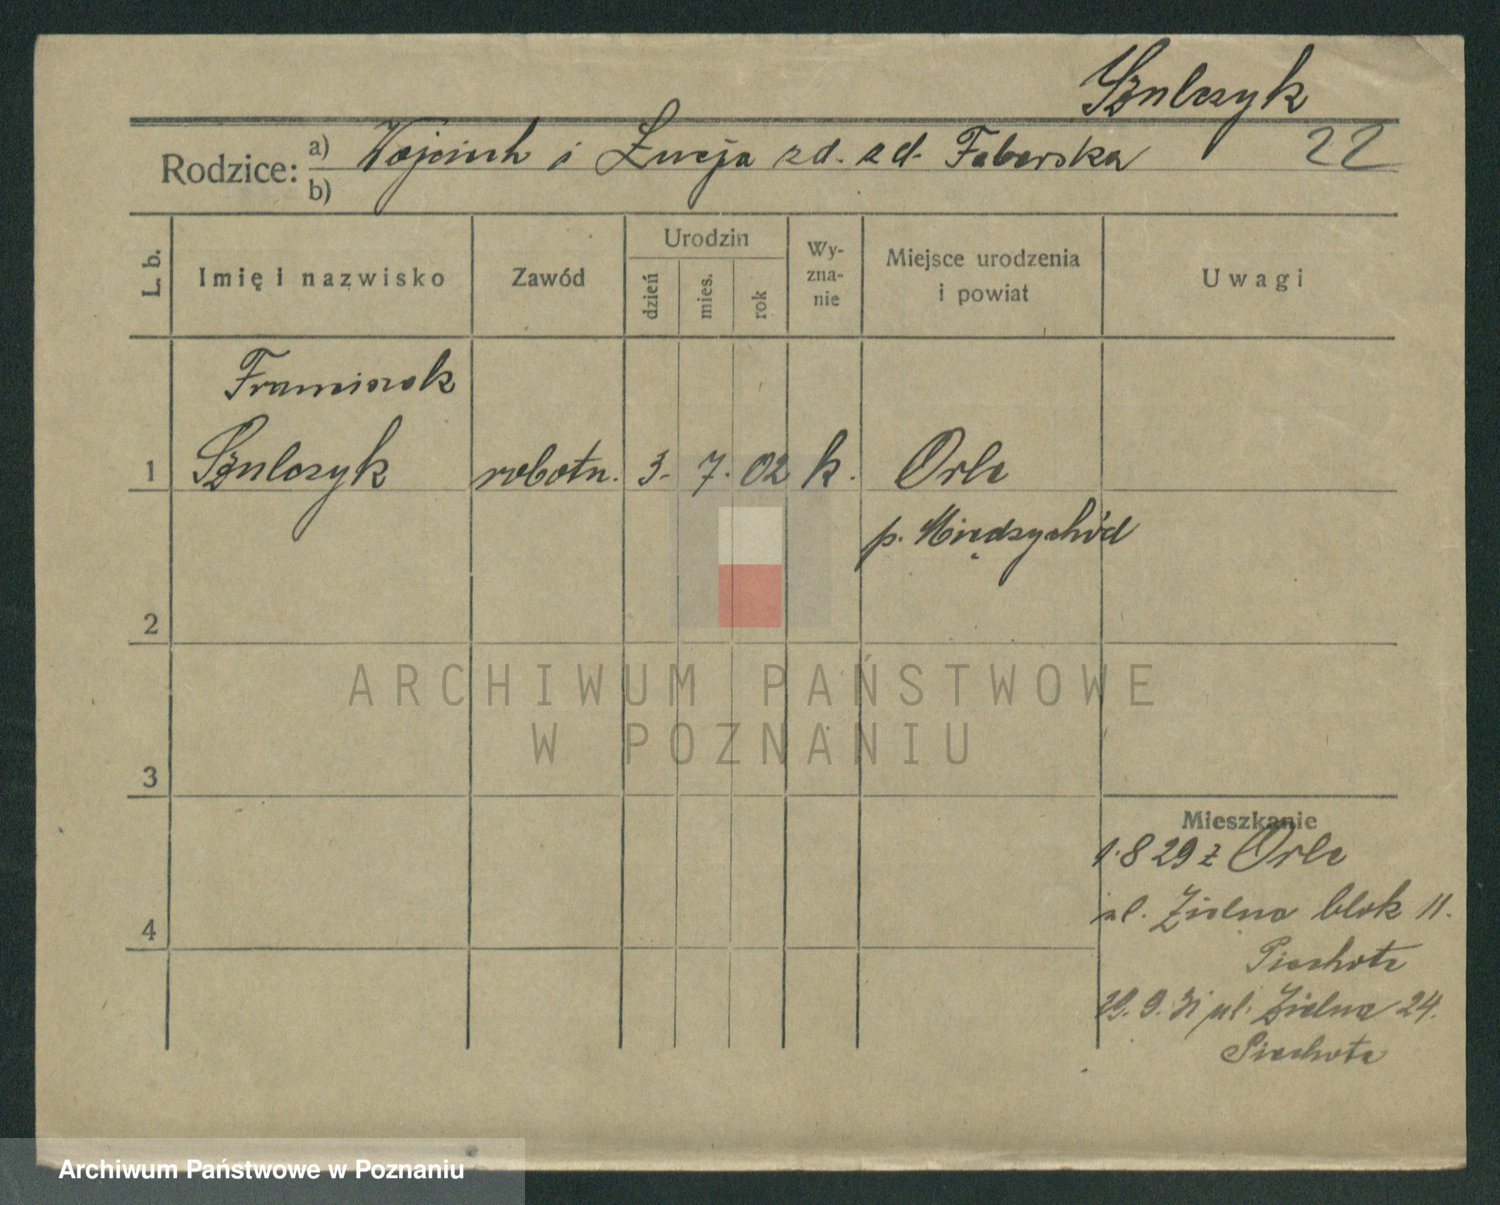 Szulczyk
Rodzice: a) Wojciech i Łucja zd. zd. Faborska 22
b)
L. b. Imię i nazwisko Zawód Urodzin dzień mies. rok Wy-zna-nie Miejsce urodzenia i powiat Uwagi
Franciszek
1 Szulczyk robotn. 3. 7. 02 k. Orle
p. Międzychód
2
3
4
Mieszkanie
1.8 29 z Orle
ul. Zielna blok 11.
Piechota
29. 9. 31 ul. Zielna 24.
Piechota
ARCHIWUM PAŃSTWOWE
W POZNANIU
Archiwum Państwowe w Poznaniu